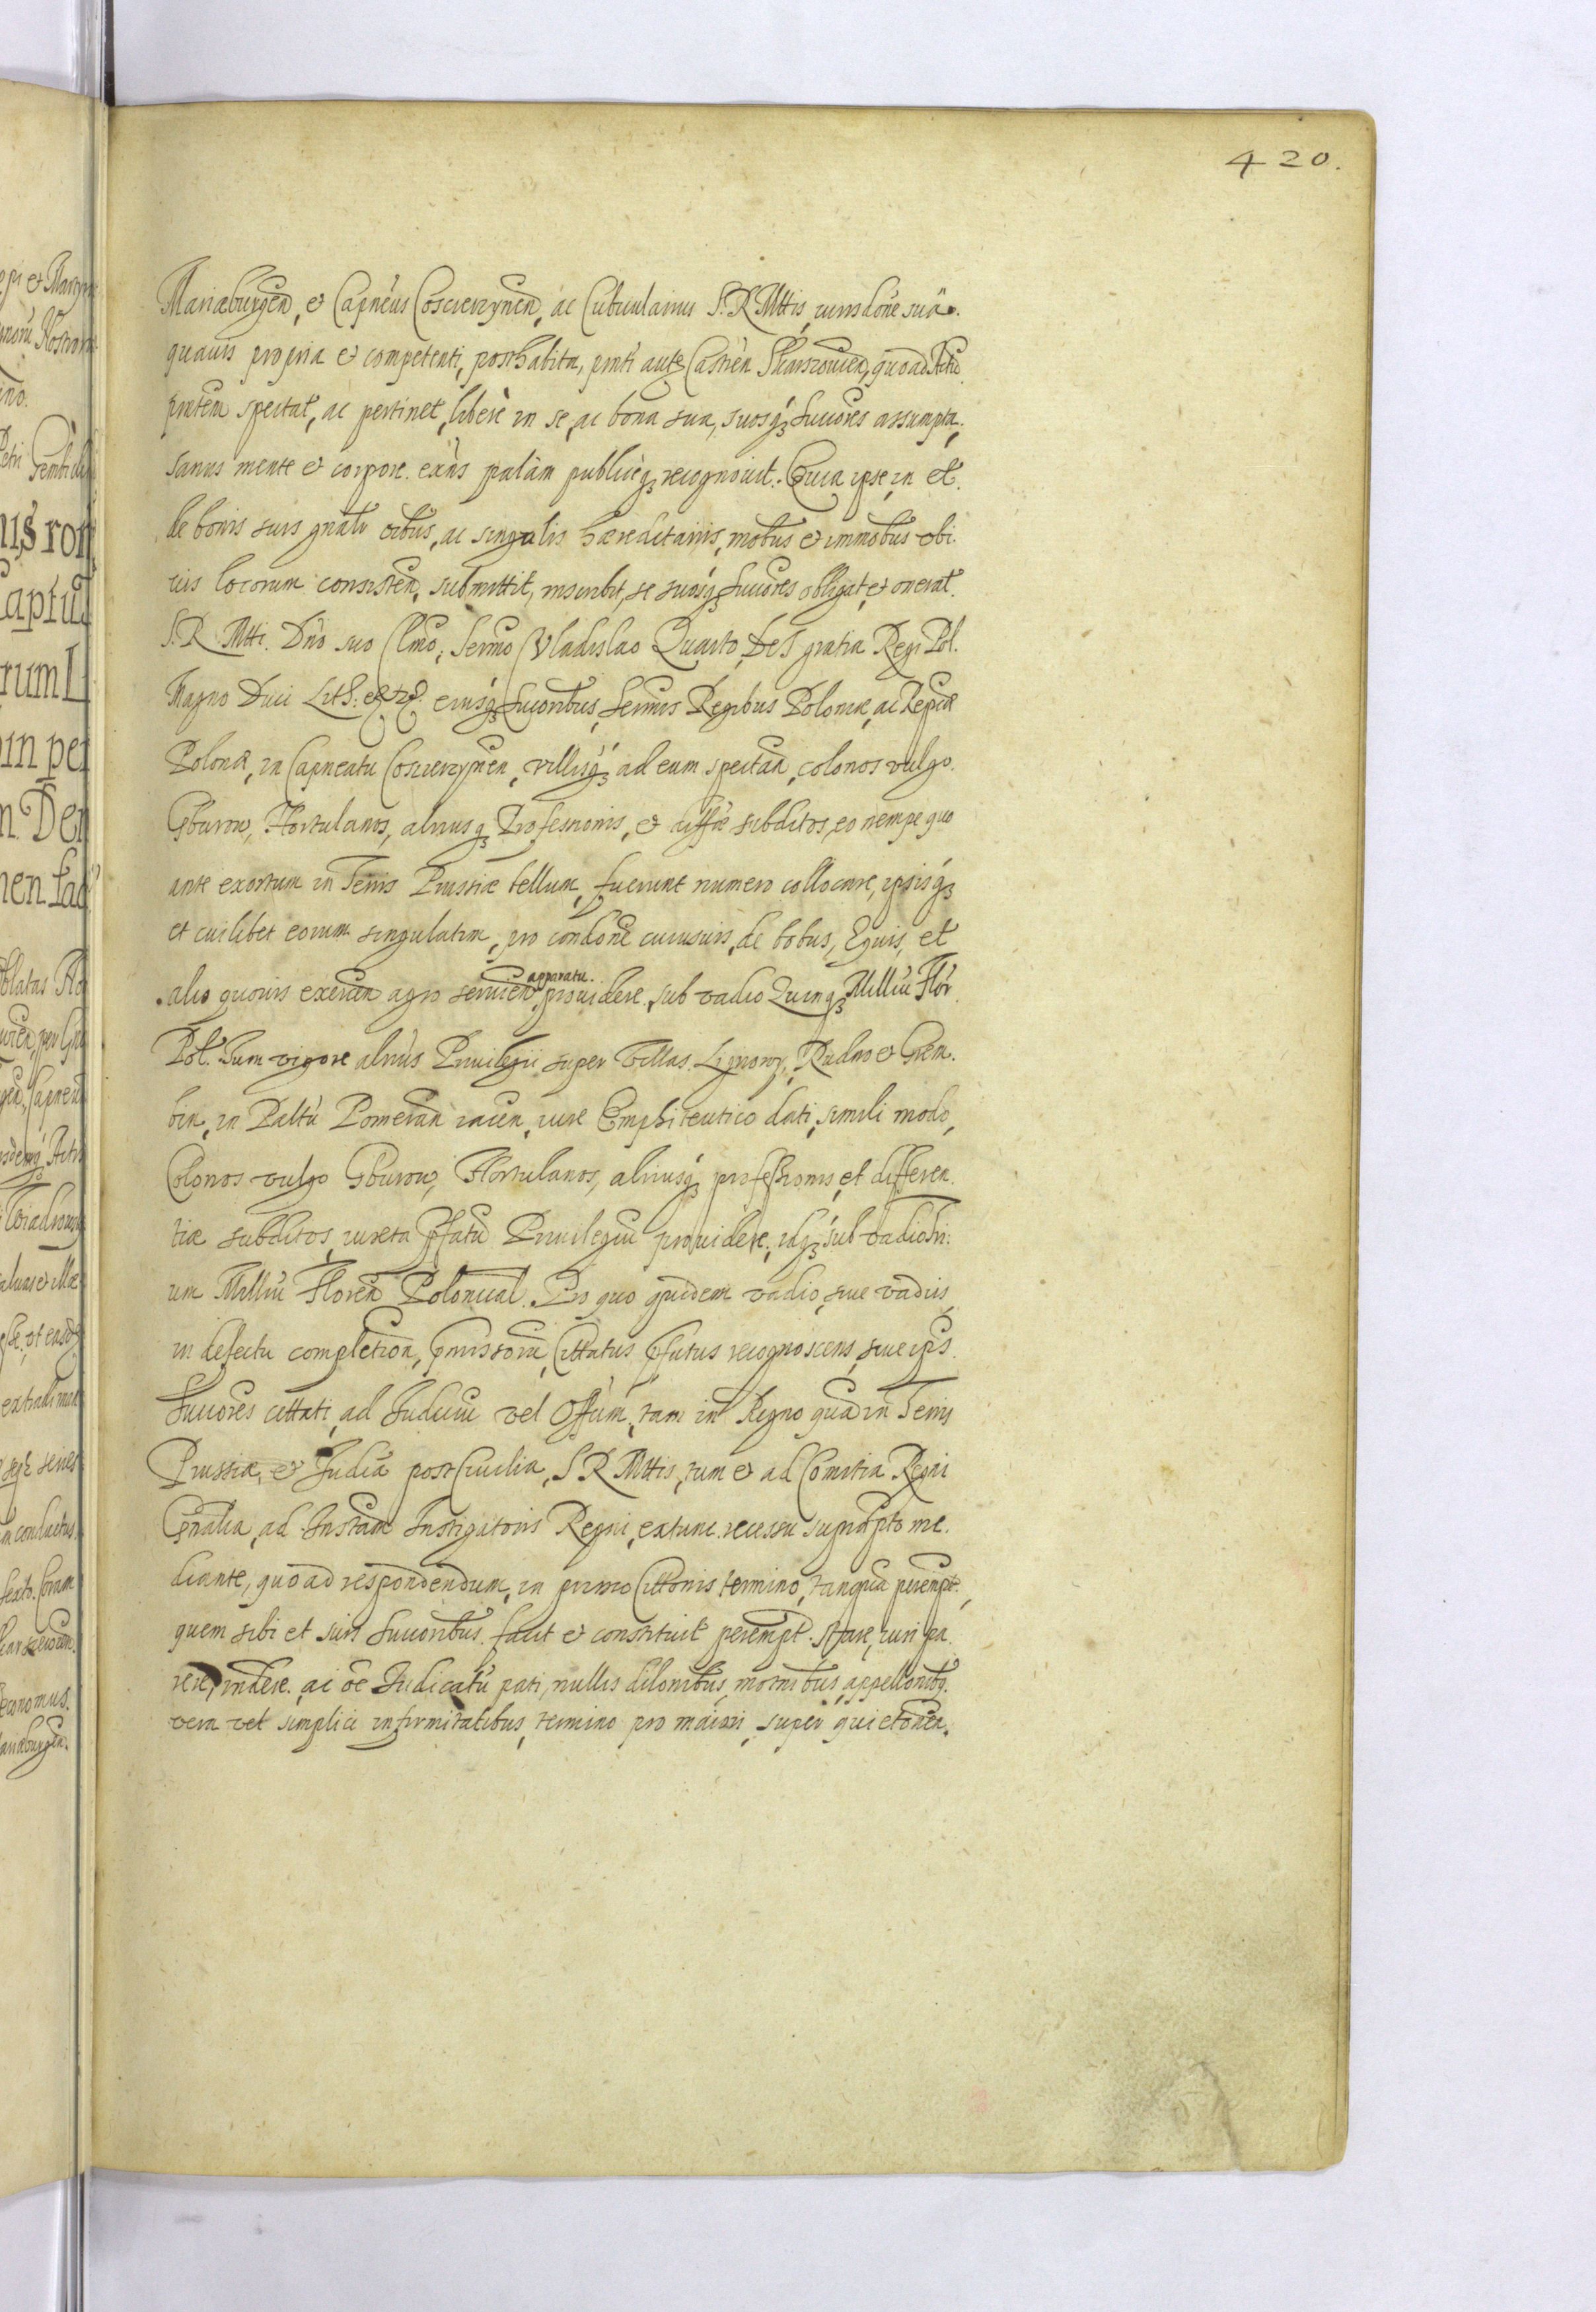 420.
Mariæburgen̄, et Capneus Coscierzynen̄, ac Cubicularius S. R. Mttis, iurisdone suâ.
quauis propria et competenti, posthabita, pnti aute Castren Skarszouien, quoad Actū
pntem spectat, ac pertinet, liberè in se, ac bona sua, suosq́ꝫ succores assumpta,
sanus mente et corpore exn̄s palàm publiceq́ꝫ recognouit. Quia ipse, in et
de bonis suis gnalr oībus, ac singulis hæreditarijs, mobus et immobus vbi
uis locorum consisten, submittit, inscribit, se suosq́ꝫ succores obligat, et onerat.
S. R. Mtti. Dn̄o suo Clmo, Sermo Vladislao Quarto, DeI gratia Regi Pol.
Magno Duci Lith: etc. eiusq́ꝫ succoribus, Sermis Regibus Poloniæ, ac Reipcæ
Polonæ, in Capneatu Coscierzynen, villisq́ꝫ ad eum spectan, colonos vulgo
Gburow, Hortulanos, aliusq́ꝫ Professionis, et diffæ subditos, eo nempe quo
ante exortum in Terris Prussiæ bellum, fuerunt numero collocare, ipsisq́ꝫ
et cuilibet eorum singulatim, pro condone cuiusuis, de bobus, Equis, et
alio quouis exercen agro seruien apparatu. prouidere, sub vadio Quinq́ꝫ Milliū Flor.
Pol. Tum vigore alrius Priuilegij super Villas Lignowy, Rudno et Grem
bin, in Paltu Pomeran iacen, iure Emphiteutico dati, simili modo,
Colonos vulgo Gburow, Hortulanos, aliusq́ꝫ professionis, et differen
tiæ subditos, iuxta pfatū Priuilegiū prouidere, idq́ꝫ sub vadio Tri
um Milliū Floren Polonical. Pro quo quidem vadio, siue vadijs,
in defectu completion, pmissorū, Cittatus pfatus recognoscens, siue ipsius
Succores cittati, ad Iudiciū vel Offūm, tam in Regno quā in Terris
Prussiæ, et Iudia postCuriilia, S R Mttis, tum et ad Comitia Regni
Gnalia, ad Instam Instigatoris Regni, extunc recessu suprascpto me
diante, quoad respondendum, in primo Cittonis termino, tanquā perempt.,
quem sibi et suis Succoribus facit et constituit perempt. stare, iuri pa
rere, rndere, ac oē Iudicatū pati, nullis dilonibus, motnibus, appellonibꝫ
vera vel simplici infirmitatibus, termino pro maiori, super quietonen.